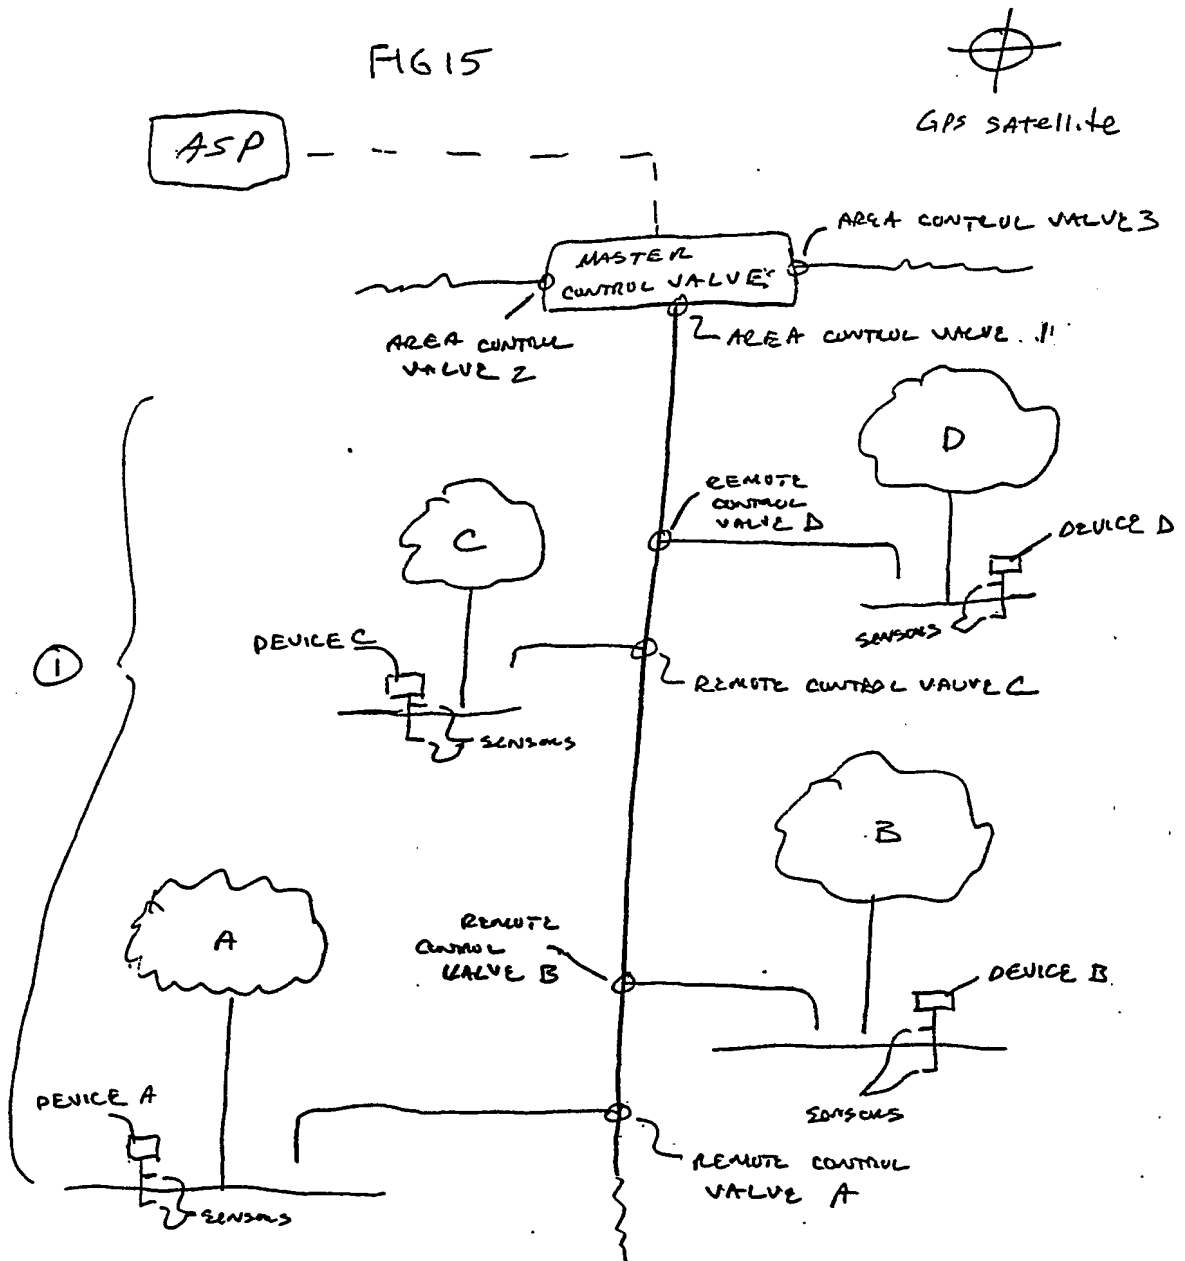 FIG 15
GPS SATellite
ASP
AREA CONTROL VALVE 3
MASTER
CONTROL VALVE
AREA CONTROL
VALVE 2
AREA CONTROL VALVE 1
D
REMOTE
CONTROL
VALVE D
DEVICE D
C
SENSORS
DEVICE C
1
REMOTE CONTROL VALVE C
SENSORS
B
A
REMOTE
CONTROL
VALVE B
DEVICE B
DEVICE A
SENSORS
REMOTE CONTROL
VALVE A
SENSORS